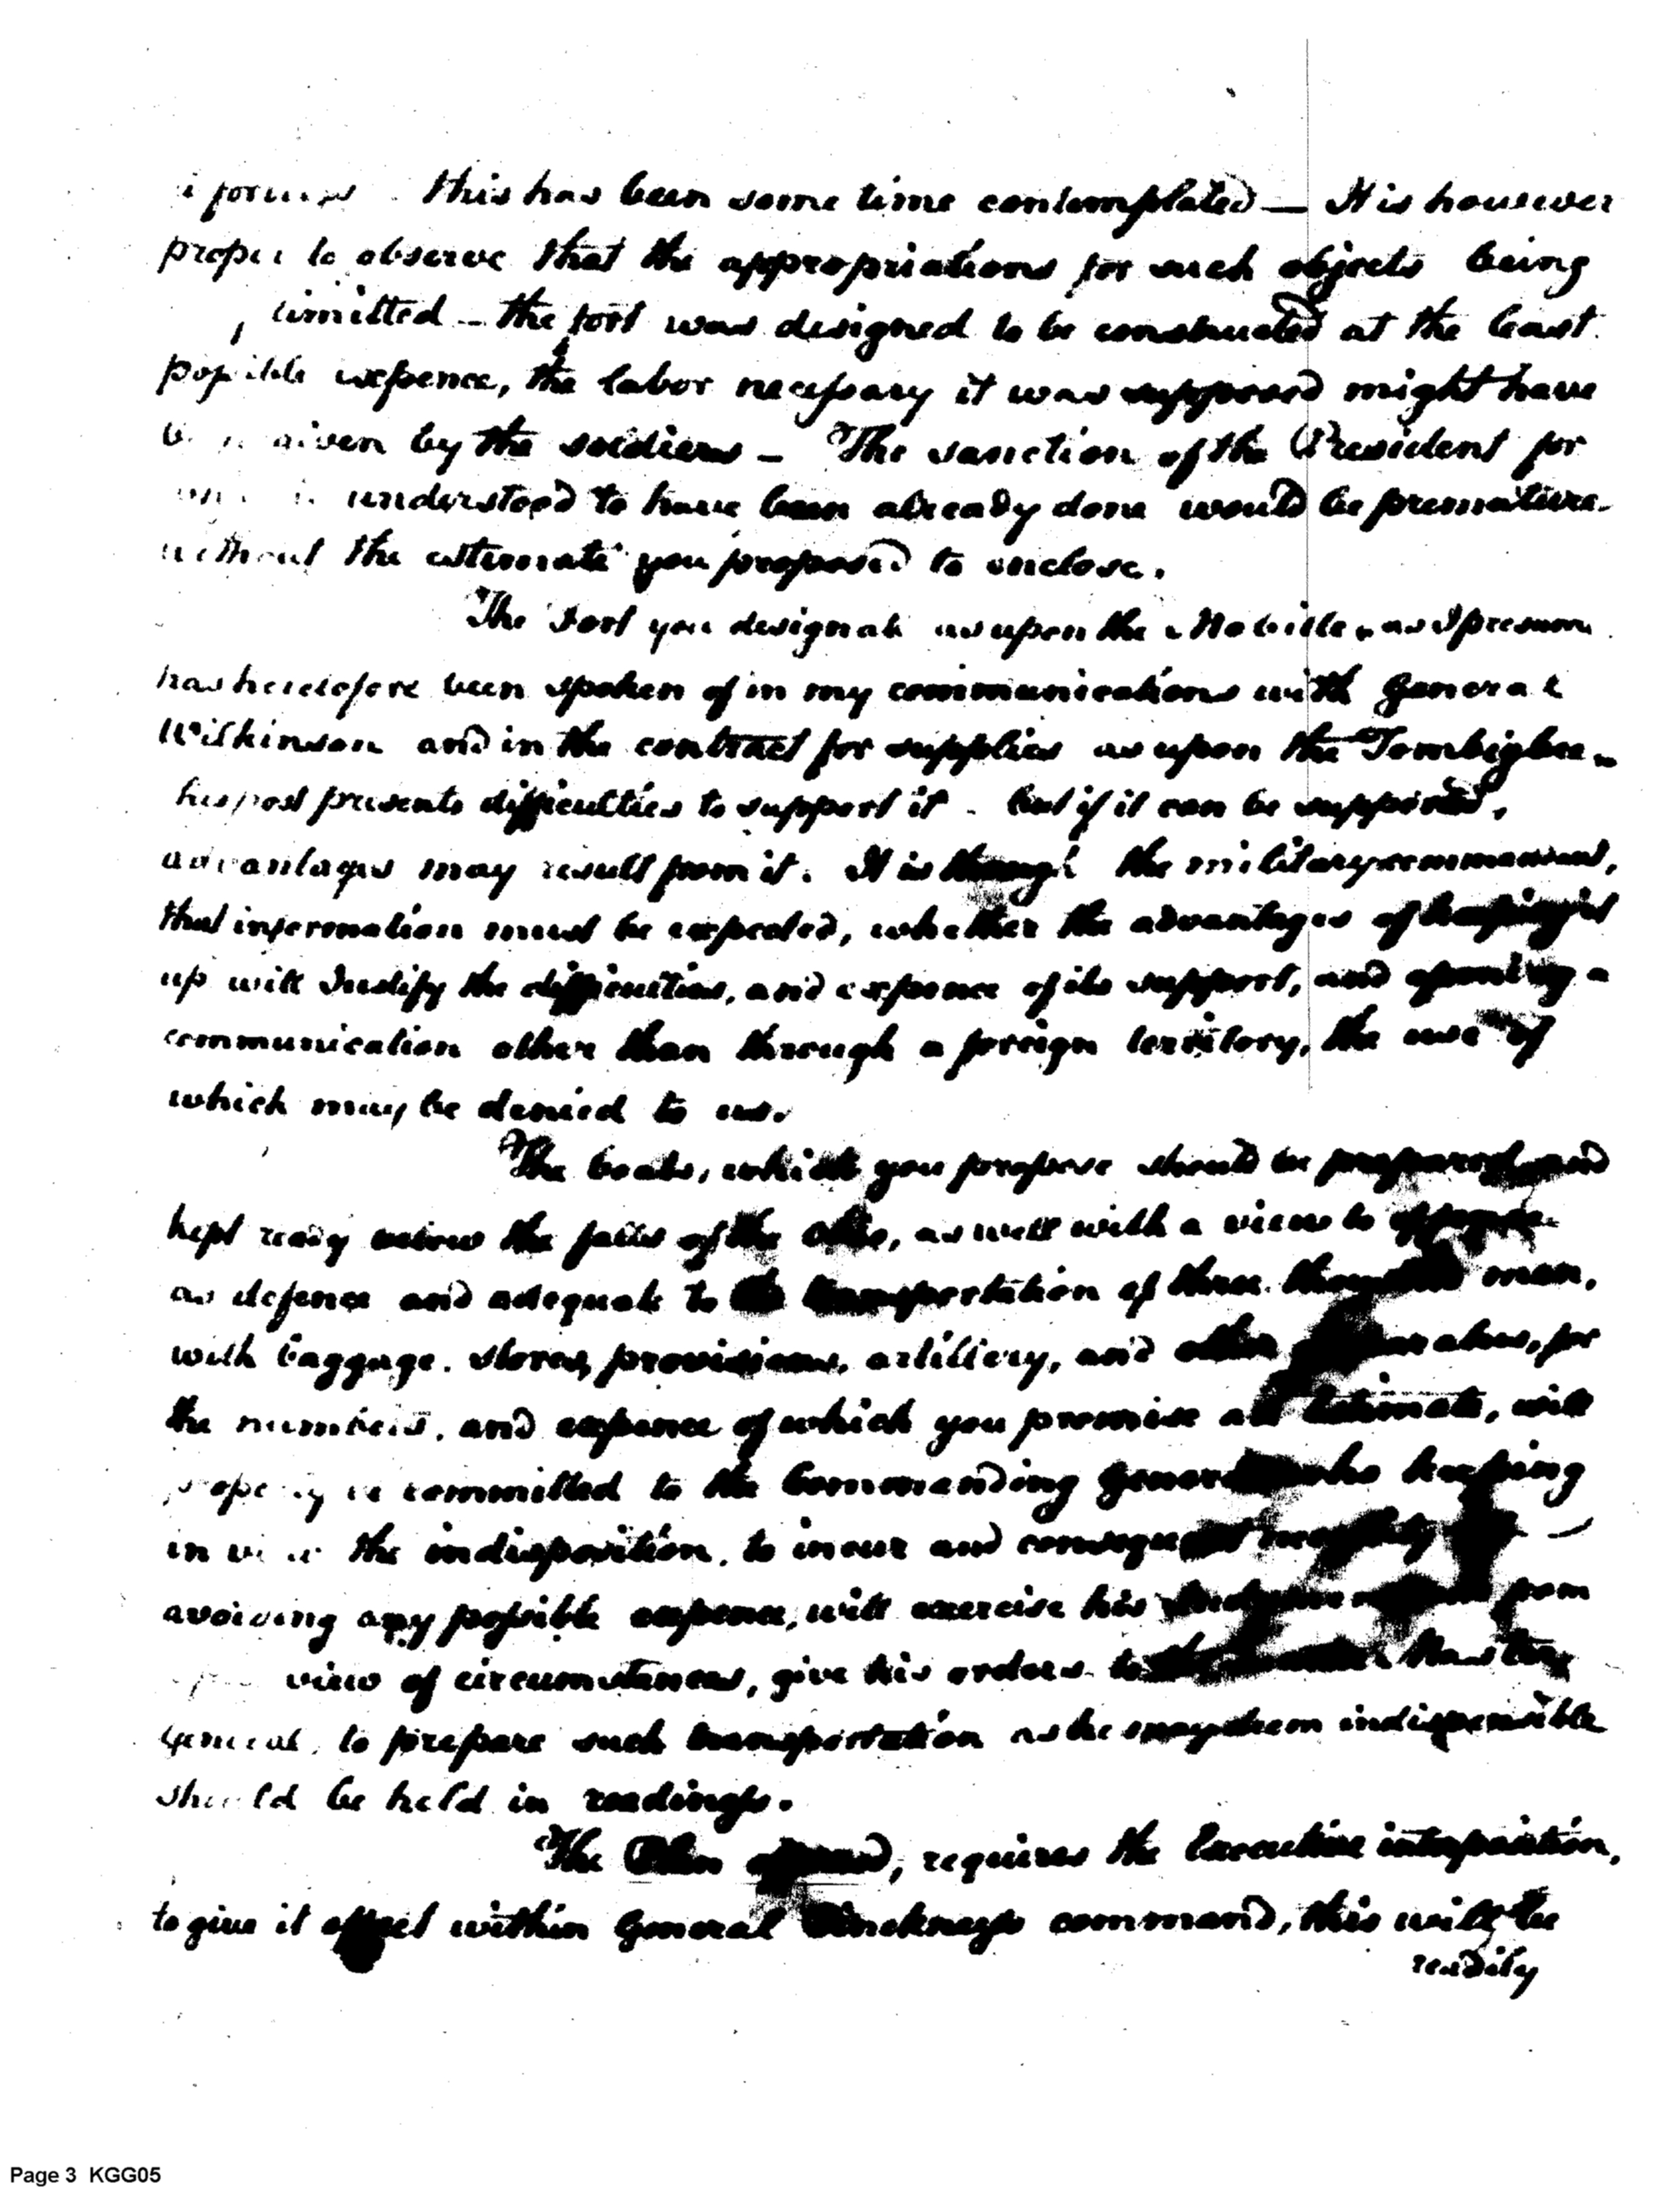 this has been some time contemplated — It is however
proper to observe that the appropriations for such objects being
limitted – the fort was designed to be constructed at the least
possible expence, the labor necessary it was supposed might have
given by the soldiers – The sanction of the President for
understood to have been already done would be premature
without the estimate you proposed to enclose.
The Fort you designate as upon the Mobille, as I presume
has heretofore been spoken of in my communications with General
Wilkinson and in the contract for supplies as upon the Tombigbee.
his post presents difficulties to support it – but if it can be supported,
advantages may result from it. It is through the military command,
that information must be expected, whether the advantages of keeping it
up will Justify the difficulties, and expence of its support, and opening a
communication other than through a foreign territory, the use of
which may be denied to us.
The boats, which you propose should be prepared and
kept ready below the falls of the Ohio, as well with a view to
as defence and adequate to the transportation of three thousand men,
with baggage, stores, provisions, artillery, and other, for
the numbers, and expence of which you promise an Estimate, will
properly be committed to the Commanding General who keeping
in view the indisposition, to incur and consequent
avoiding any possible expence, will exercise his from
view of circumstances, give his orders to the Quarter Master
General, to prepare such transportation as he may deem indispensible
should be held in readiness.
The Plan, requires the Executive interposition,
to give it effect within General Pinckneys command, this will be
readily
Page 3 KGG05